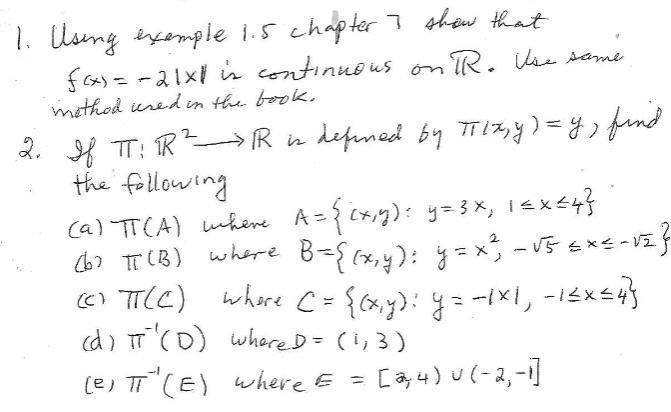 1. Using example 1.5 chapter 7 show that
f(x) = -2|x| is continuous on ℝ. Use same
method used in the book.
2. If π: ℝ² → ℝ is defined by π(x,y) = y, find
the following
(a) π(A) where A = {(x,y): y = 3x, 1 ≤ x ≤ 4}
(b) π(B) where B = {(x,y): y = x², -√5 ≤ x ≤ -√2}
(c) π(C) where C = {(x,y): y = -|x|, -1 ≤ x ≤ 4}
(d) π⁻¹(D) where D = (1, 3)
(e) π⁻¹(E) where E = [2, 4) ∪ (-2, -1]